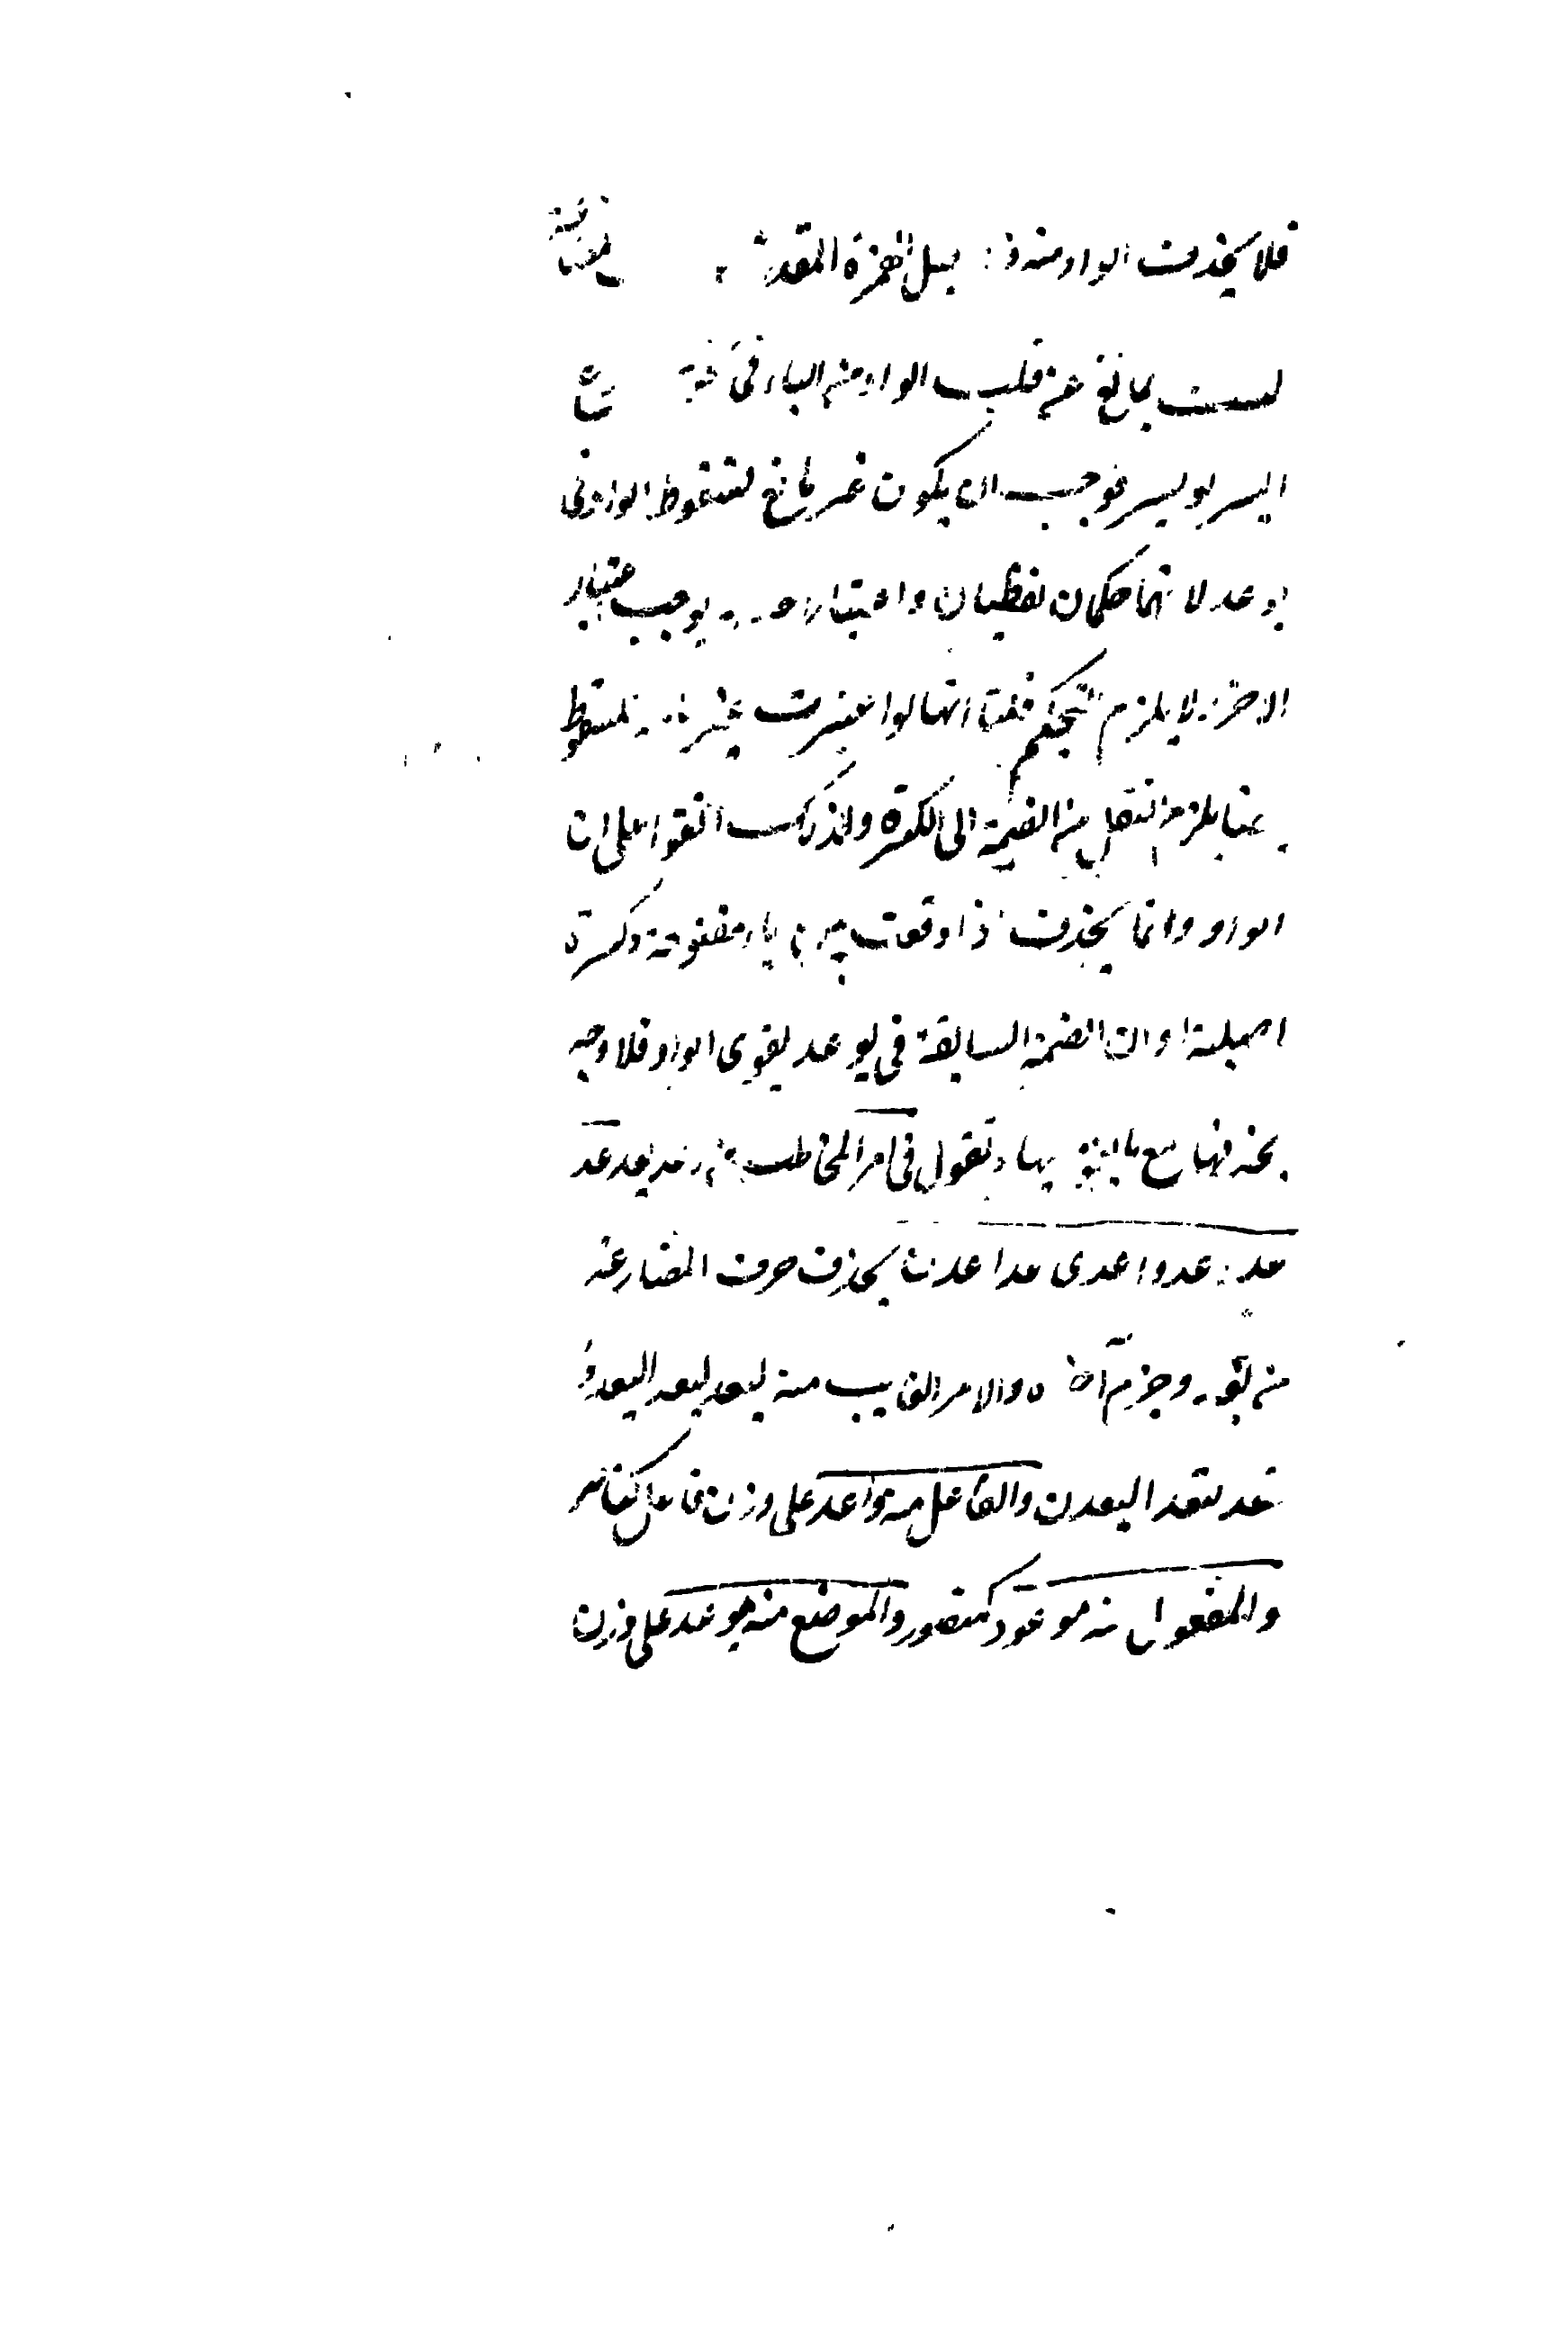 فلا يحذف الواو منه بدليل الهمزة المقدرة
ليست بمانع عن قلب الواو من الياء في نحو
ايسر يوسر فوجب ان يكون غير مانع لسقوط الواو في
يوعد لانهما حكمان لفظيان واعتبار يوجب اعتبار
الاخر لا يلزم التحكم قلنا انها لو اعتبرت لسقوط
يلزم النقل من الضمة الى الكسرة ولذلك اتفقوا على ان
الواو وانما يحذف اذا وقعت بين ياء مفتوحة وكسرة
اصلية او ان الضمة السابقة في يوعد يقوى الواو فلا وجه
بحذفها مع ما يقويها وتقول في امر المخاطب من وعد يعد عد
عدوا عدى عدا عدن بحذف حرف المضارعة
من وجزم آخره والامر الغايب منه ليعد ليعدا ليعدوا
لتعد لتعدا ليعدن والفاعل منه واعد على وزن فاعل كناصر
والمفعول منه موعود كمنصور والموضع منه موعد على وزن